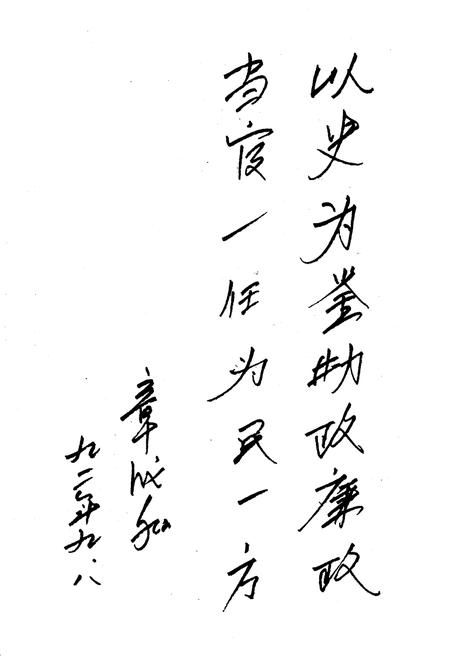 以史为鉴勤政廉政
当官一任为民一方
章成
九二年九.八